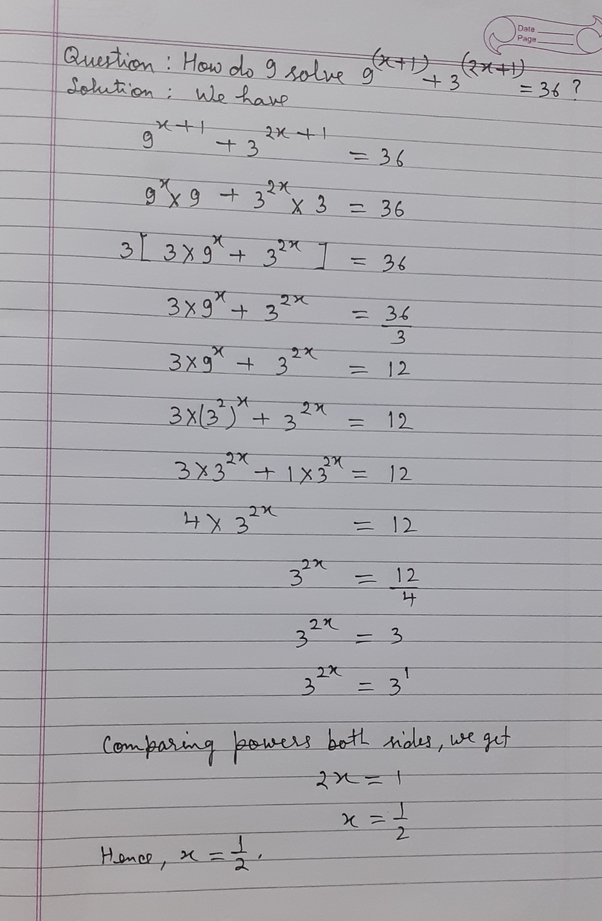 Date
Page
Question : How do I solve 9^(x+1) + 3^(2x+1) = 36 ?
Solution : We have
9^x+1 + 3^2x+1 = 36
9^x × 9 + 3^2x × 3 = 36
3 [ 3×9^x + 3^2x ] = 36
3×9^x + 3^2x = 36/3
3×9^x + 3^2x = 12
3×(3^2)^x + 3^2x = 12
3×3^2x + 1×3^2x = 12
4 × 3^2x = 12
3^2x = 12/4
3^2x = 3
3^2x = 3^1
Comparing powers both sides, we get
2x = 1
x = 1/2
Hence, x = 1/2.